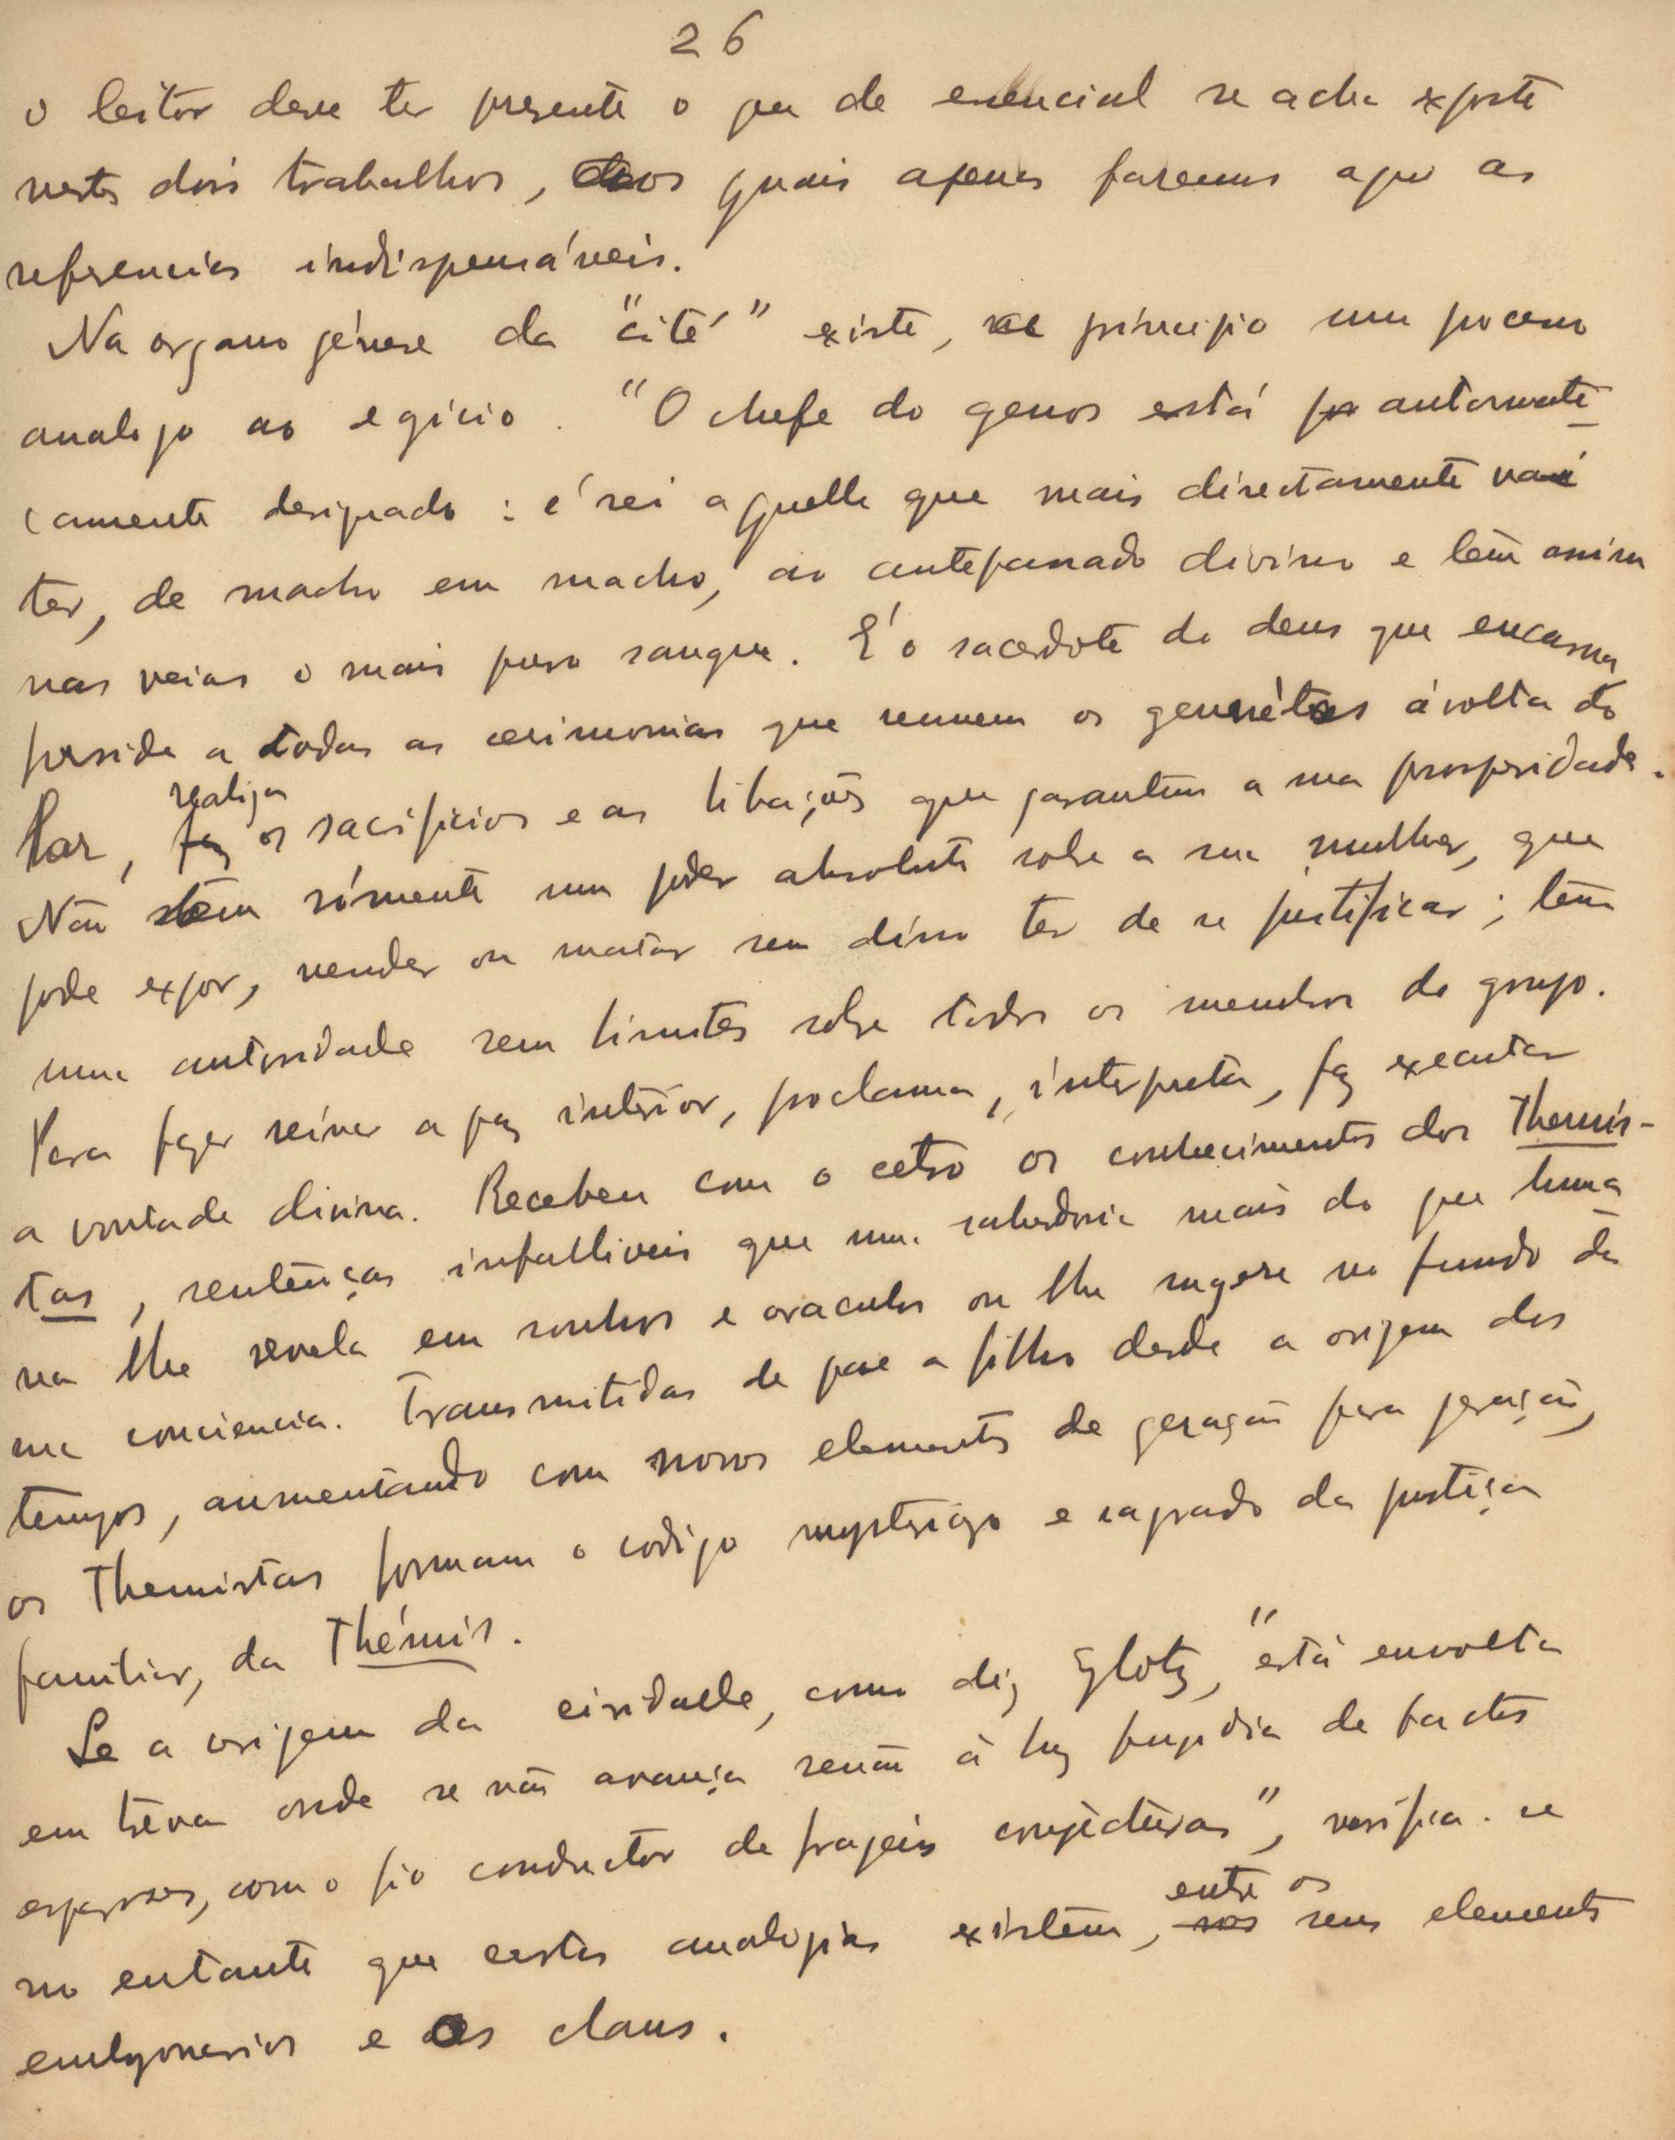 26
o leitor deve ter presente o que de essencial se acha exposto
nestes dois trabalhos, aos quais apenas faremos aqui as
referencias indispensáveis.
Na organogénese da "cité" existe, ao principio um processo
analogo ao egipcio. "O chefe do genos está automati-
camente designado: é rei aquelle que mais directamente vai
ter, de macho em macho, ao antepassado divino e tem assim
nas veias o mais puro sangue. E' o sacerdote do deus que encarna
preside a todas as cerimonias que reunem os gennétes á volta do
lar, realiza os sacrificios e as libações que garantem a sua prosperidade.
Não tem sómente um poder absoluto sobre a sua mulher, que
pode expor, vender ou matar sem disso ter de se justificar; tem
uma autoridade sem limites sobre todos os membros do grupo.
Para fazer reinar a paz interior, proclama, interpreta, faz executar
a vontade divina. Recebeu com o cetro os conhecimentos dos Themis-
tas, sentenças infalliveis que uma sabedoria mais do que huma
na lhe revela em sonhos e oraculos ou lhe sugere no fundo da
sua conciencia. Transmitidas de pae a filho desde a origem dos
tempos, aumentando com novos elementos de geração para geração,
os Themistas formam o codigo mysterioso e sagrado da justiça
familiar, da Thémis.
Se a origem da cividade, como diz Glotz, "está envolta
em treva onde se não avança senão à luz fugidia de factos
esparsos, com o fio conductor de frageis conjecturas", verifica-se
no entanto que certas analogias existem, entre os seus elementos
embryonarios e os clans.